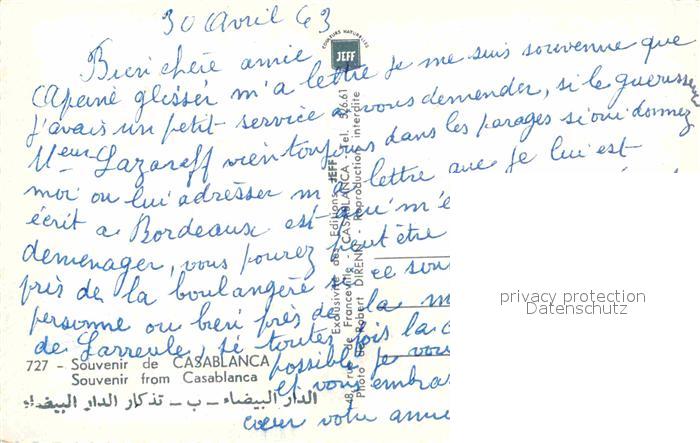 30 Avril 63
Bien chère amie
Capeine glisser m'a lettre je me suis souvenue que
j'avais un petit service a vous demender, si le guerisseur
Mr Lazareff vien toujours dans les parages si oui donnez
moi ou lui adresser m a lettre que je lui est
écrit a Bordeaux est qu'i m'e
demenager, vous pourez peut être
près de la boulangéré ce sont
personne ou bien près de la m
de Larreule, si toutes fois la c
possible je vous
et vous embras
cœur votre amie
COULEURS NATURELLES
JEFF
Exclusivité des Editions JEFF
48, rue de Franceville - CASABLANCA - Tel. 526.61
Photo de Robert DIRENN - Reproduction interdite
727 - Souvenir de CASABLANCA
Souvenir from Casablanca
الدار البيضاء - ب - تذكار الدار البيضاء
privacy protection
Datenschutz